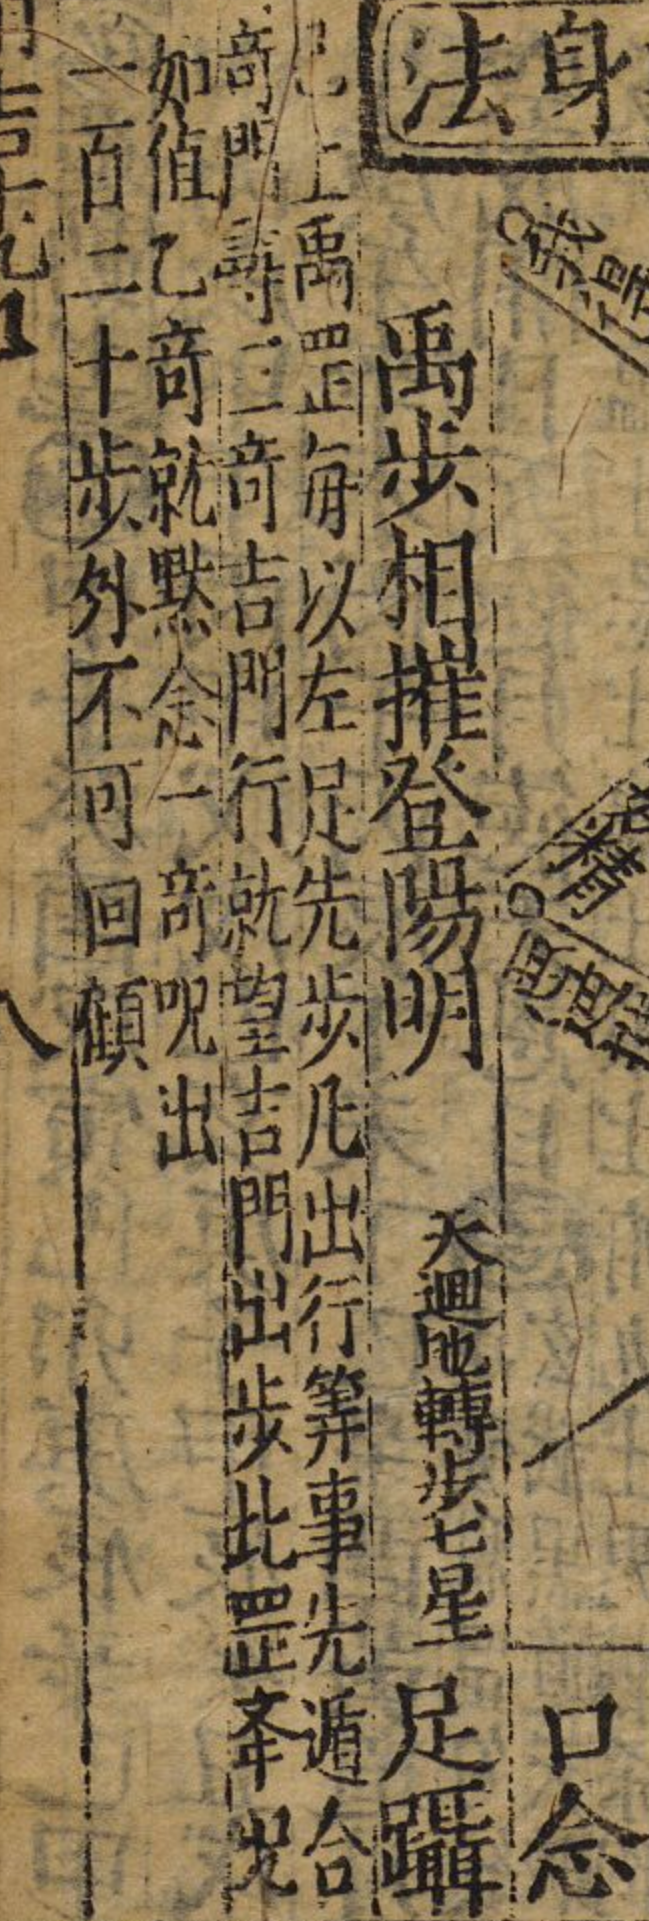 身法
我得
口念
精
禹步相摧登陽明
天迴地轉步七星
足躡
已上禹罡每以左足先步凡出行筭事先遁合
竒門壽二竒吉門行就望吉門出步此罡夅咒
如值乙竒就黙念一竒呪出
一百二十步外不可回顧
八